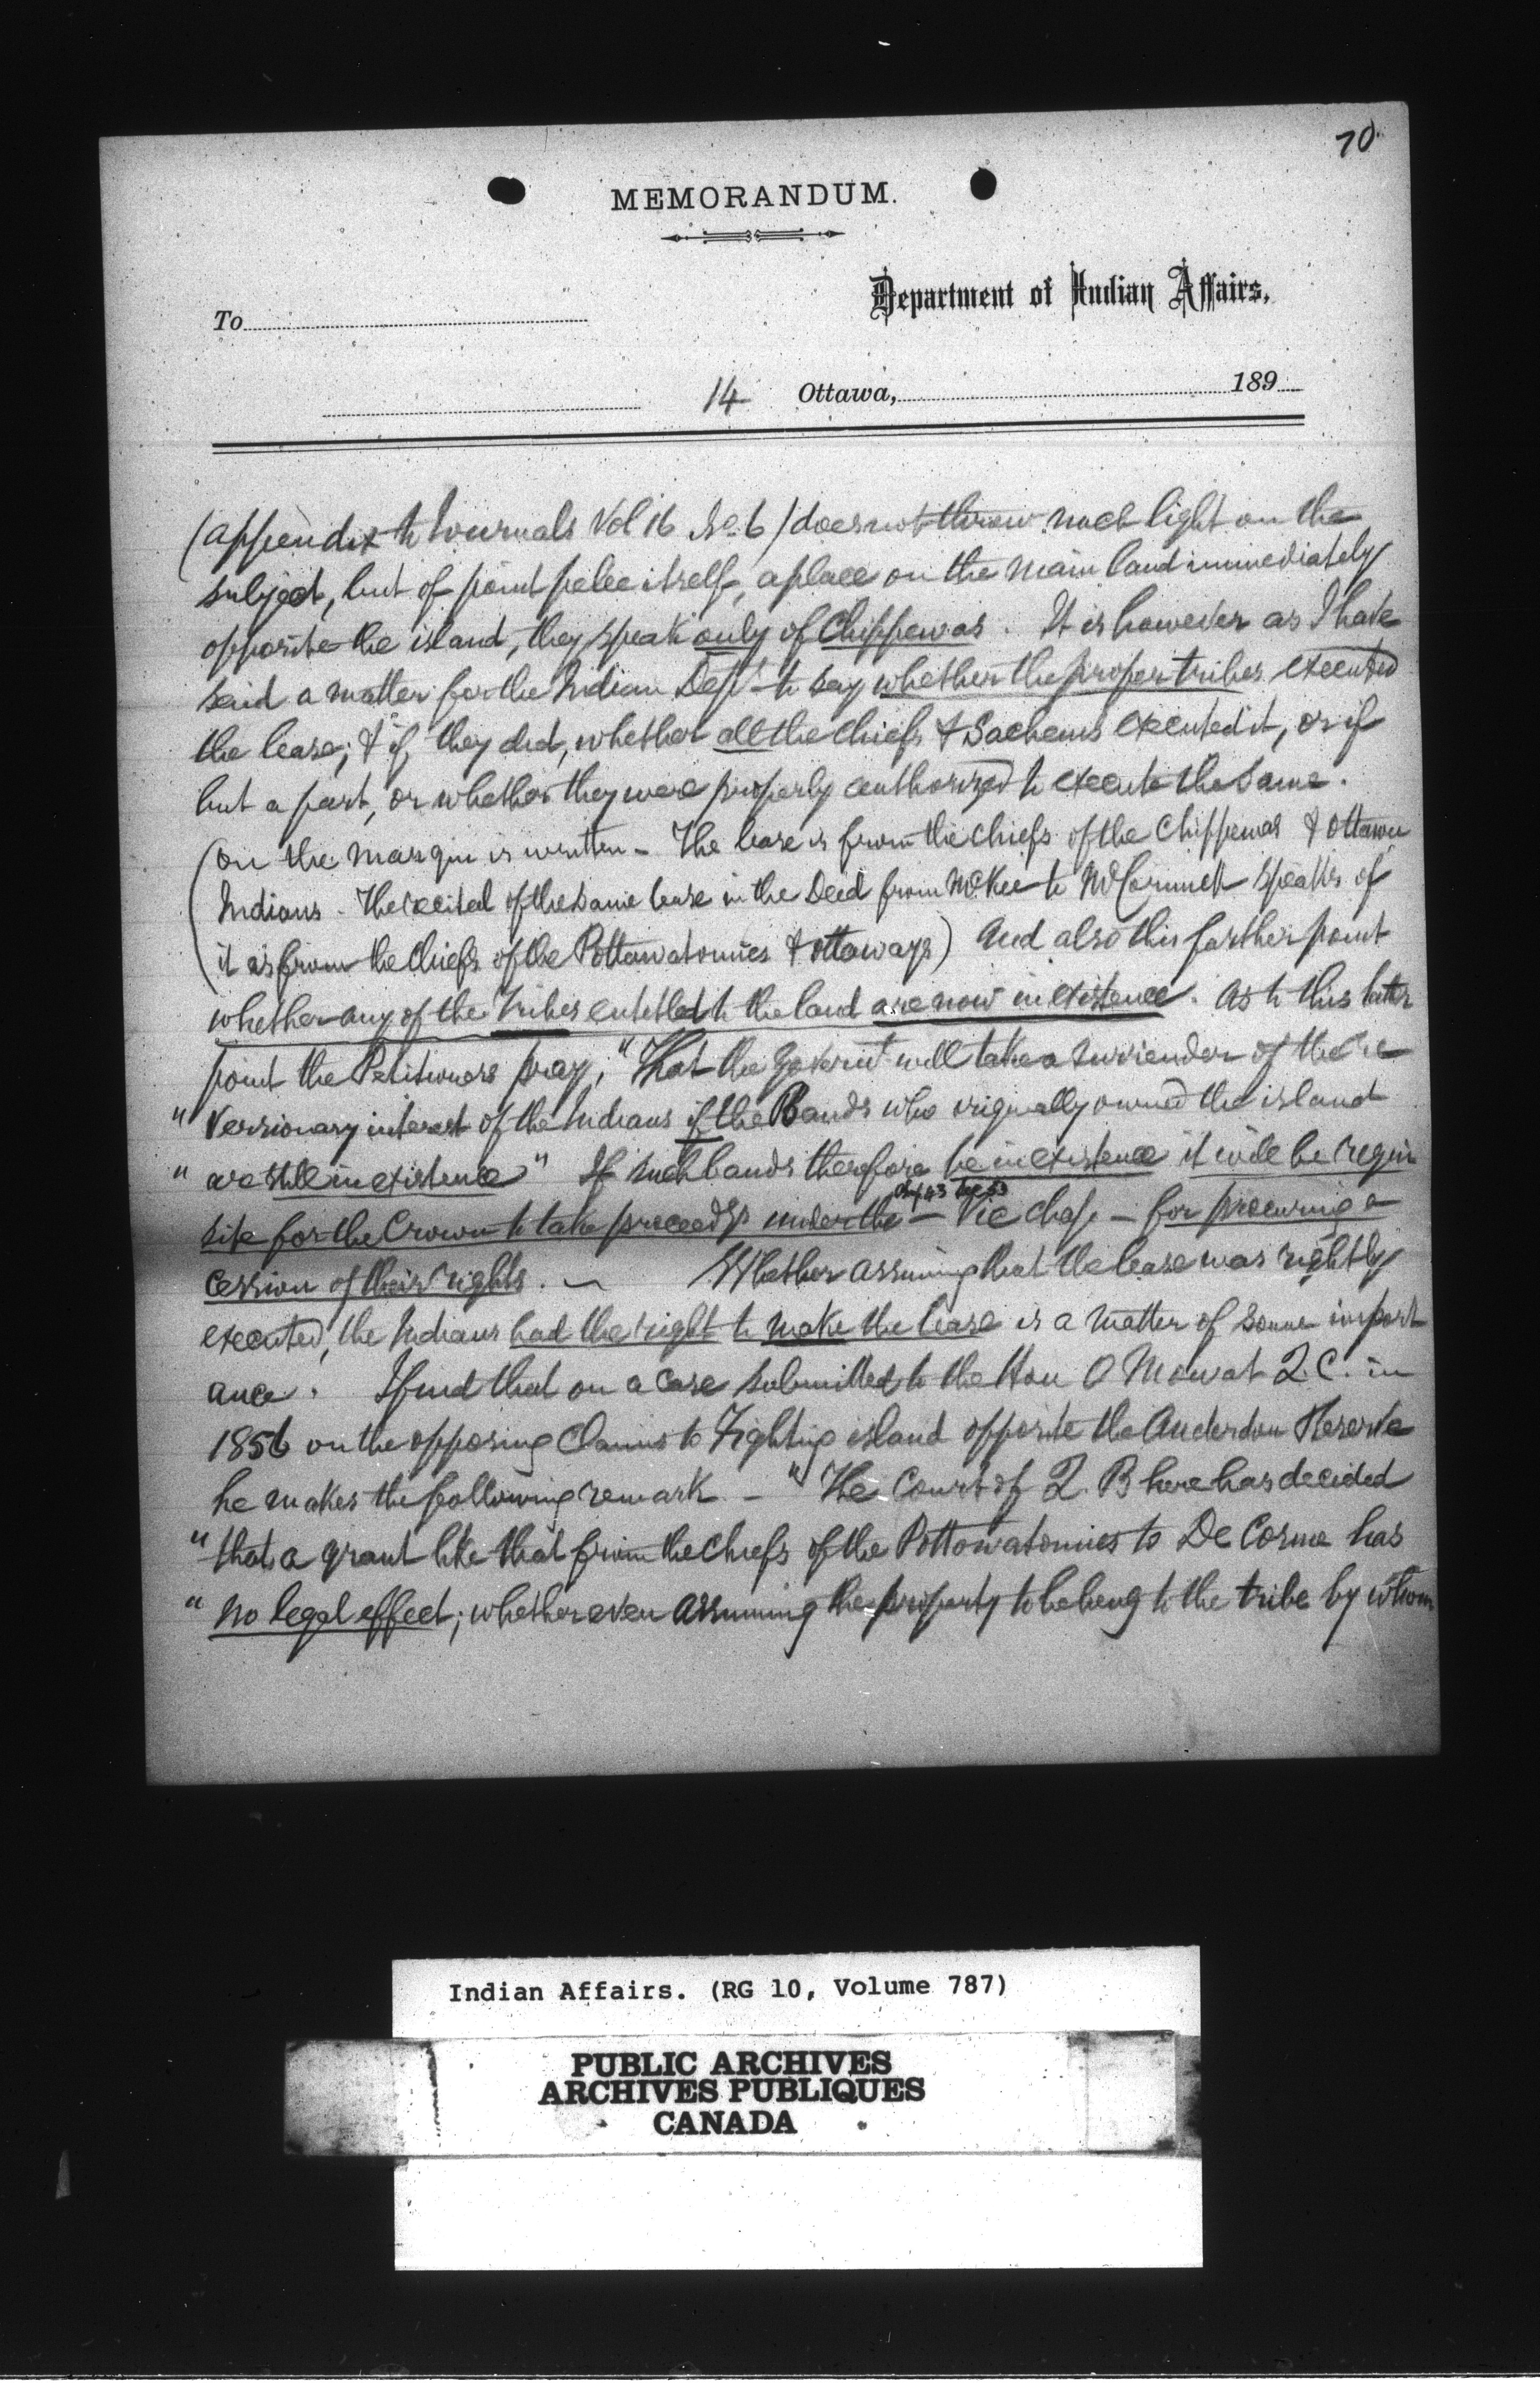 70.
MEMORANDUM.
Department of Indian Affairs,
To
14 Ottawa, 189
(appendix to Journals Vol 16 No. 6) does not throw much light on the
subject, but of point pelee itself, a place on the main land immediately
opposite the island, they speak only of Chippewas. It is however as I have
said a matter for the Indian Dept to say whether the proper tribes executed
the lease; & if they did, whether all the chiefs & Sachems executed it, or if
but a part, or whether they were properly authorized to execute the same.
(On the margin is written - The lease is from the chiefs of the Chippewas & Ottawa
Indians - The recital of the same lease in the Deed from McKee to McCormick speaks of
it as from the Chiefs of the Pottawatomies & Ottaways) And also this further point
whether any of the Tribes entitled to the land are now in existence. As to this latter
point the Petitioners pray, "That the Governt will take a surrender of the re
" versionary interest of the Indians if the Bands who originally owned the island
" are still in existence" If such bands therefore be in existence it will be requi
Chap 43
site for the Crown to take proceedgs under the — Vic chap — for procuring a
cession of their rights. ~ Whether assuming that the lease was rightly
executed, the Indians had the right to make the lease is a matter of some import
ance. I find that on a case submitted to the Hon O Mowat Q.C. in
1856 on the opposing Claims to Fighting island opposite the Anderdon Reserve
he makes the following remark - "The Court of Q. B here has decided
" that a grant like that from the chiefs of the Pottowatomies to De Corme has
" no legal effect; whether even assuming the property to belong to the tribe by whom
Indian Affairs. (RG 10, Volume 787)
PUBLIC ARCHIVES
ARCHIVES PUBLIQUES
CANADA